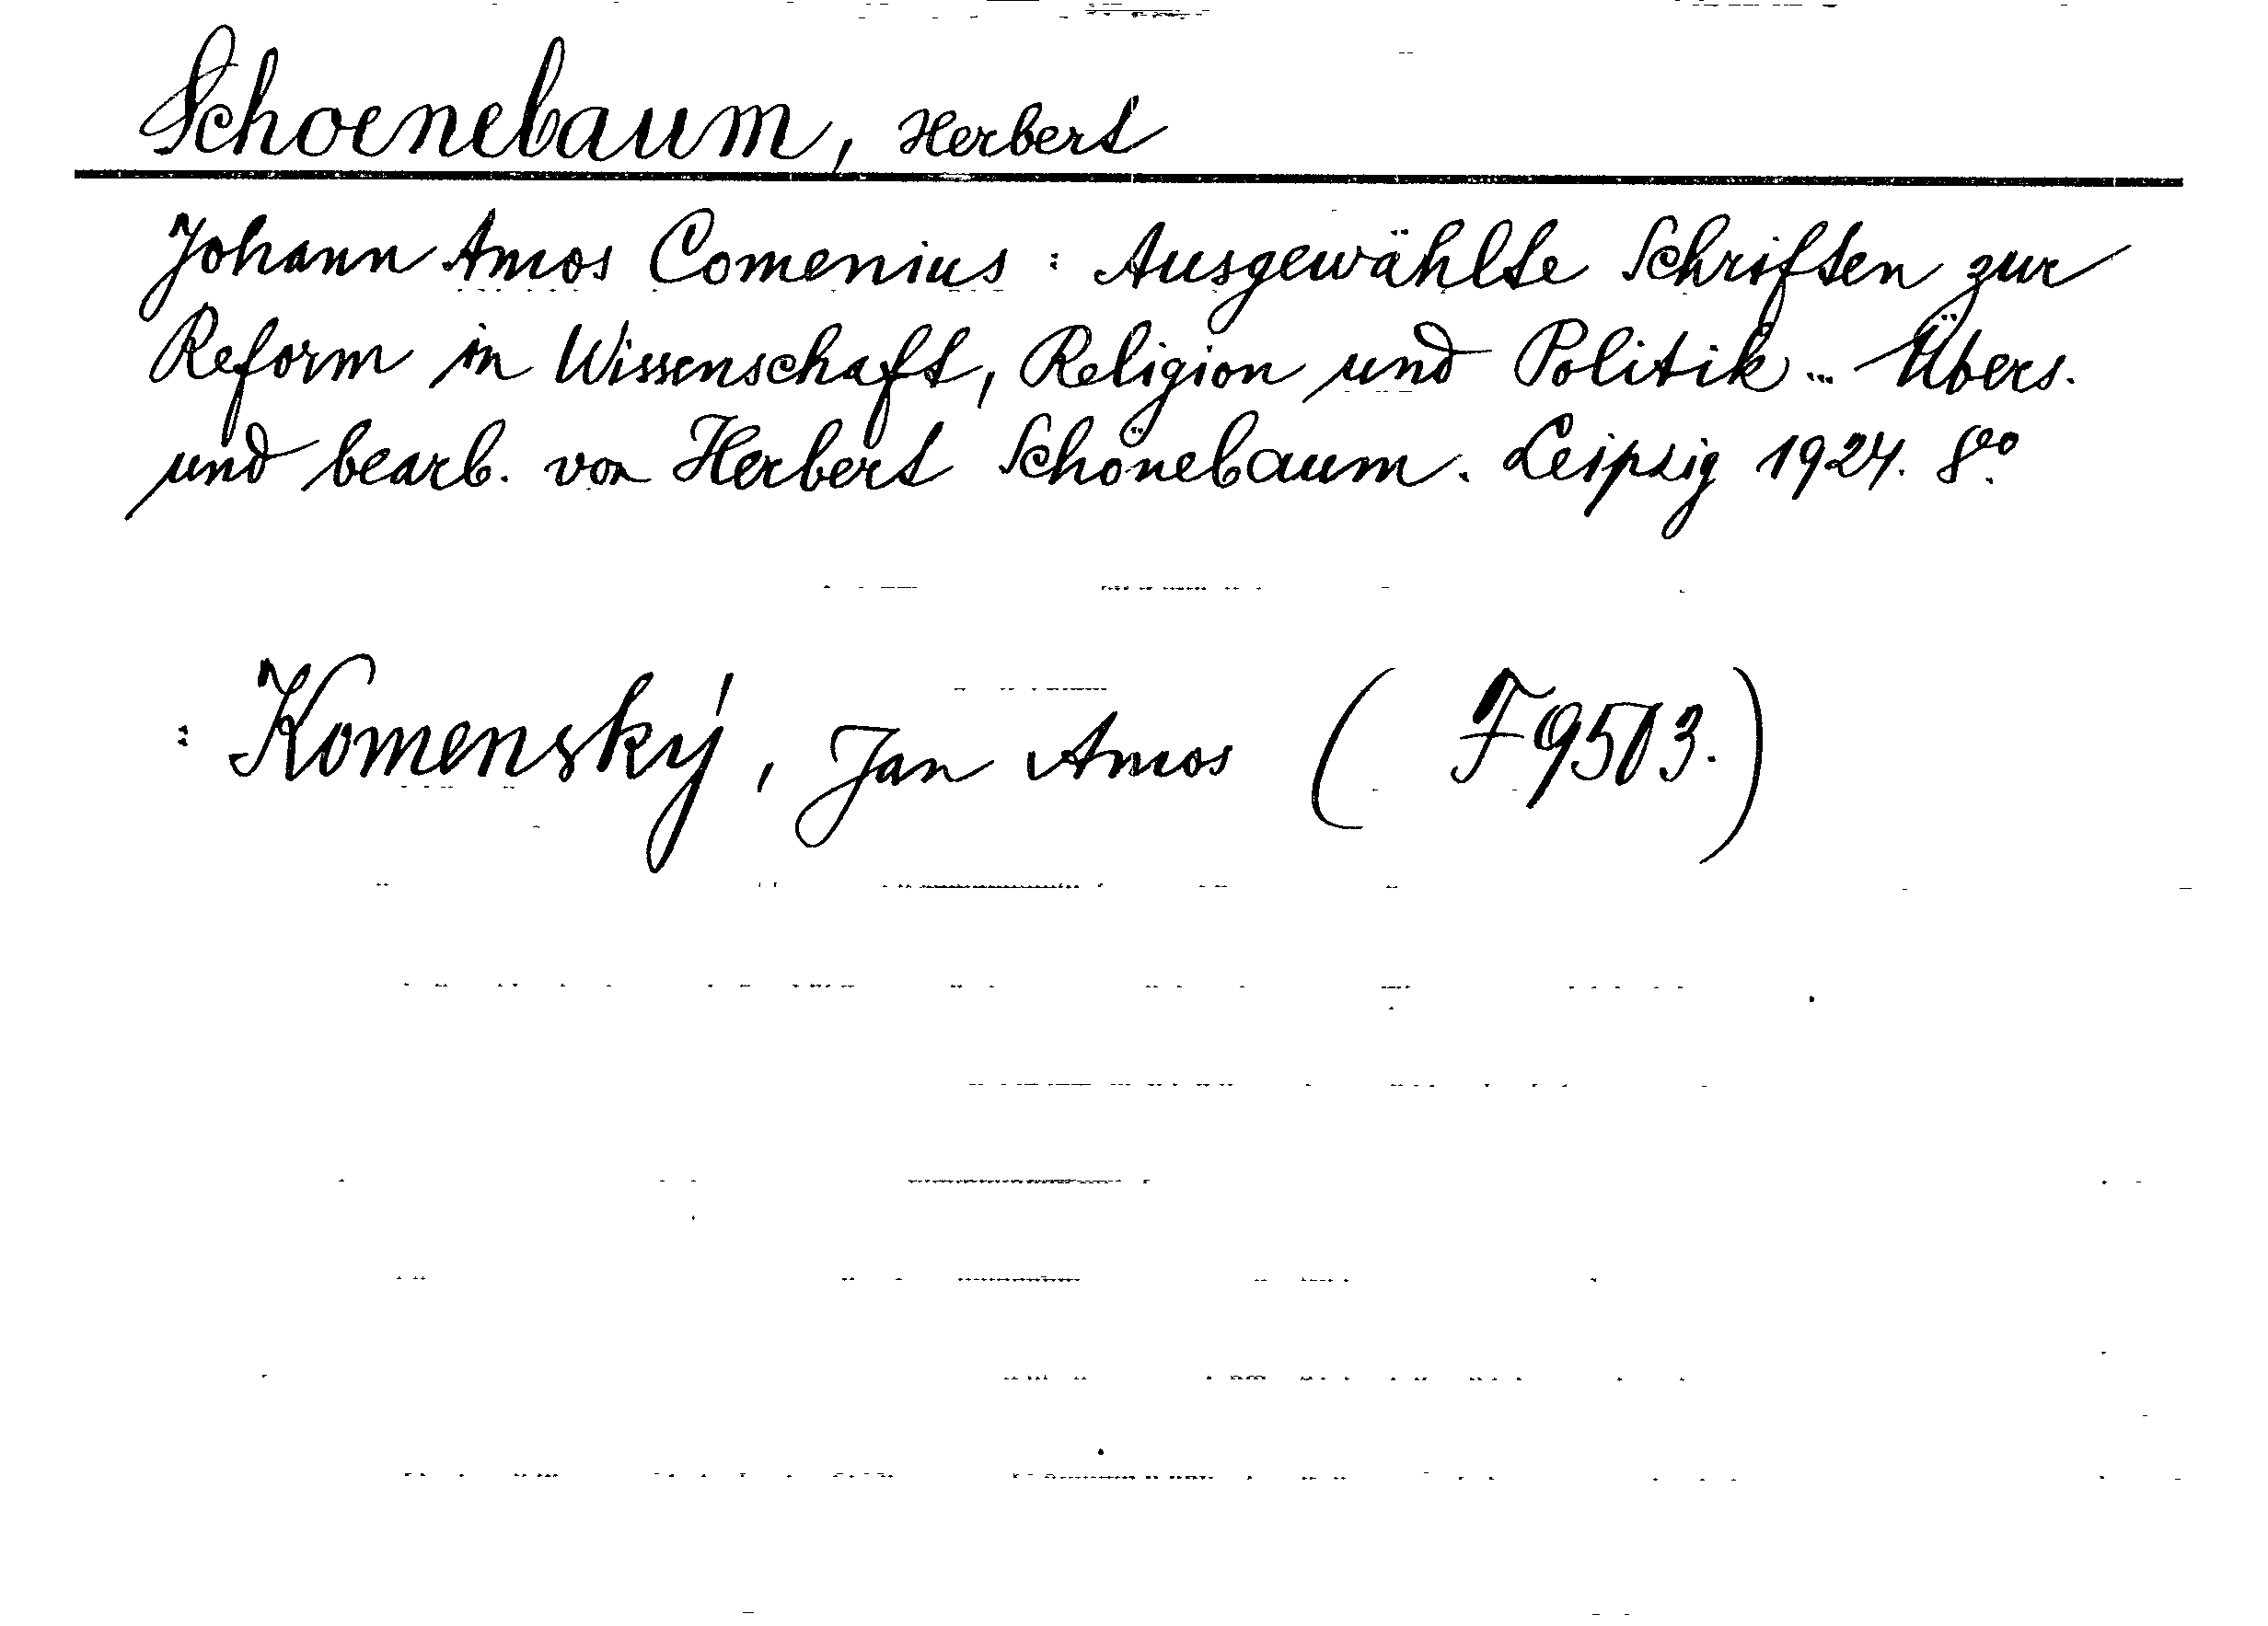 Schoenebaum, Herbert
Johann Amos Comenius : Ausgewählte Schriften zur
Reform in Wissenschaft, Religion und Politik... Übers.
und bearb. von Herbert Schönebaum. Leipzig 1924. 8vo.
: Komenský, Jan Amos ( F 9513.)